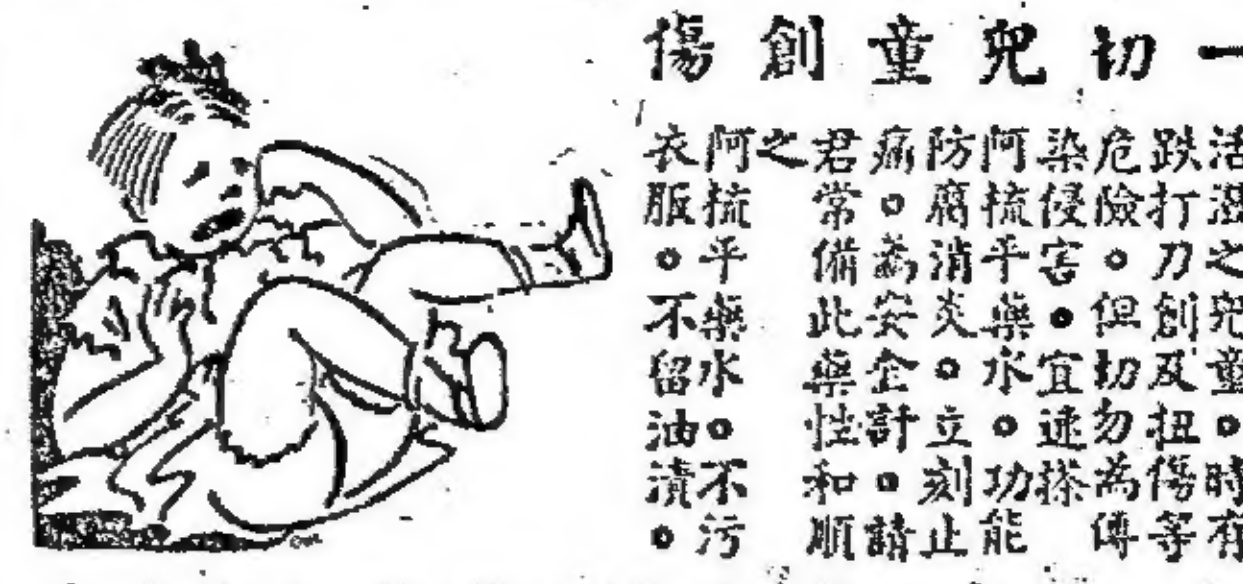 一初兒童創傷
活潑之兒童。時有
跌打刀創及扭傷等
危險。但切勿為傳
染侵害。宜速搽
阿梳平藥水。功能
防腐消炎。立刻止
痛。為安全計。請
君常備此藥性和順
之
阿梳平藥水。不污
衣服。不留油漬。